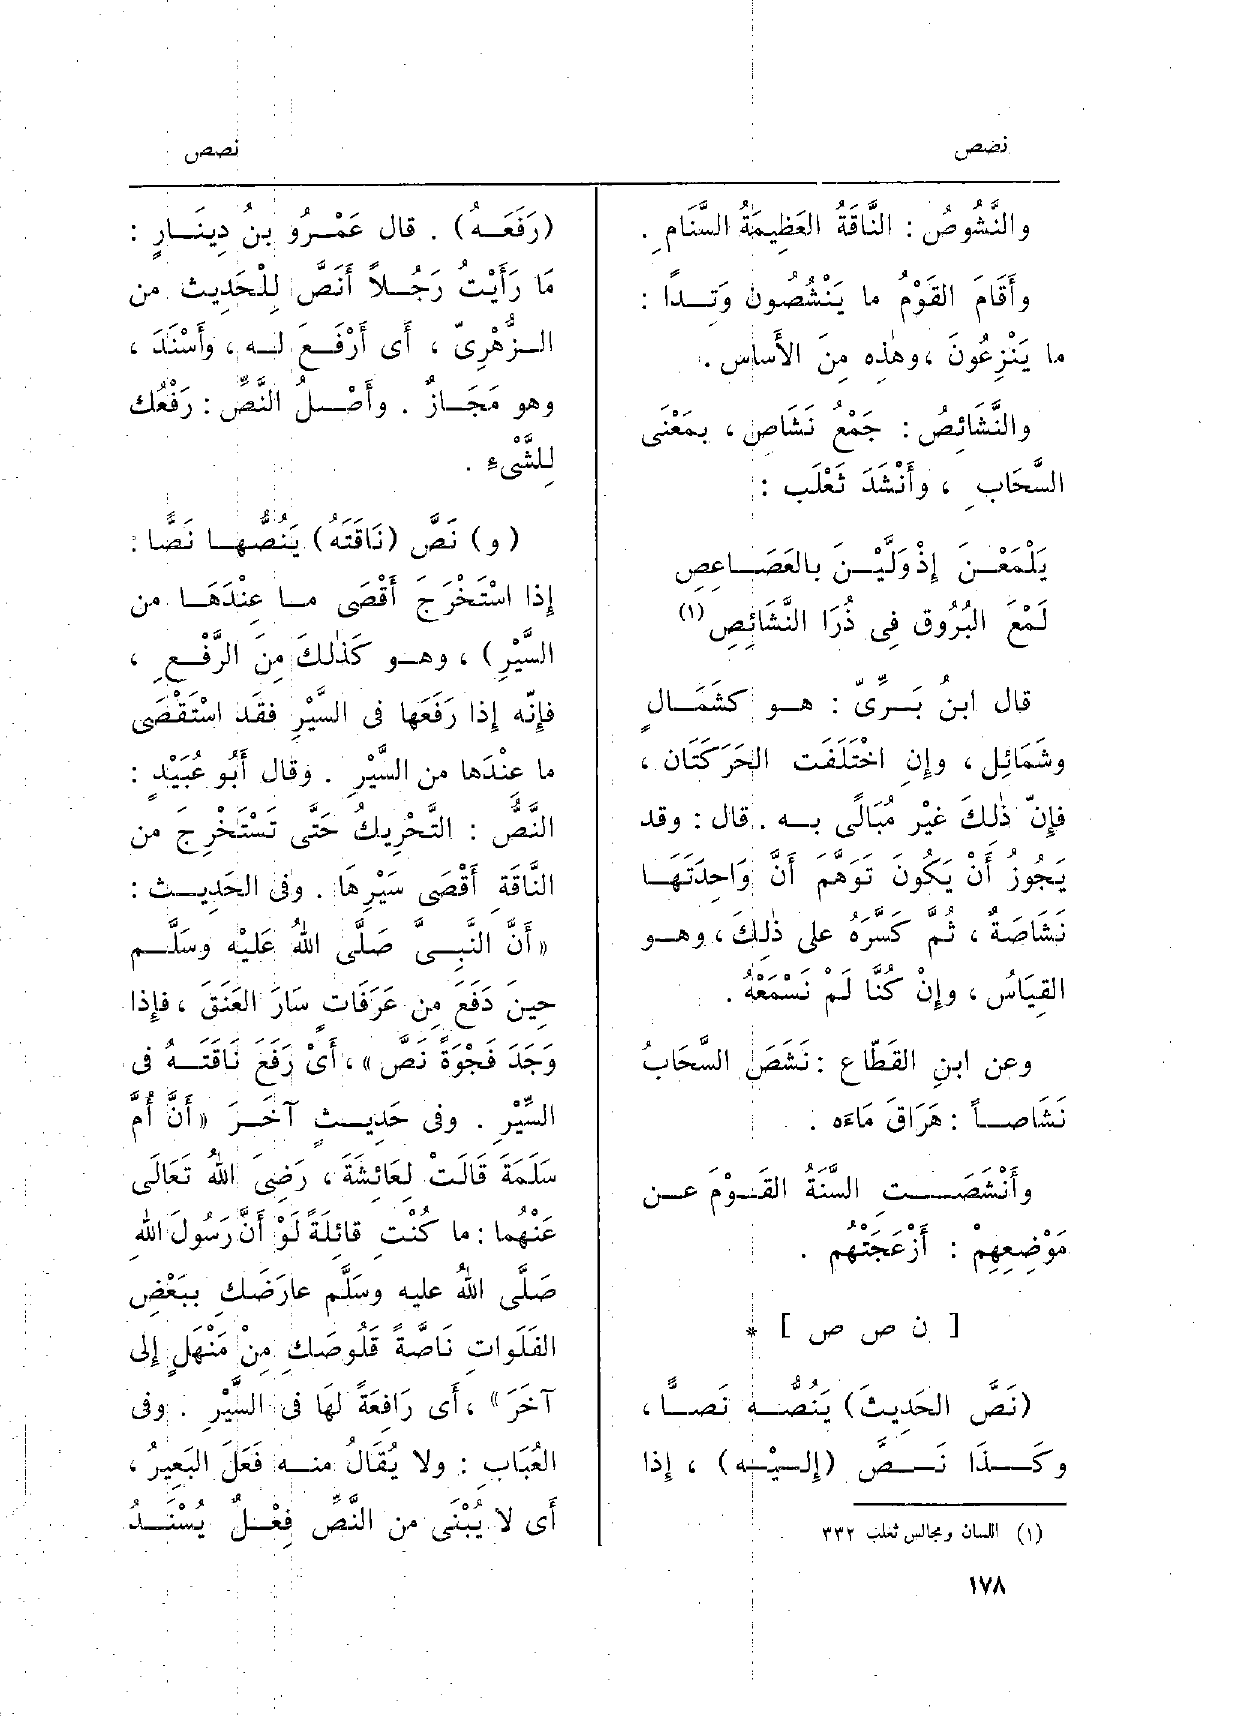 نصص
نصص
والنَّشُوصُ : النَّاقَةُ العَظِيمَةُ السَّنَامِ .
وأَقَامَ القَوْمُ ما يَنْشُصُون وَتِداً :
ما يَنْزِعُونَ ، وهٰذِه مِنَ الأَساس .
والنَّشَائِصُ : جَمْعُ نَشَاصٍ ، بمَعْنَى
السَّحَابِ ، وأَنْشَدَ ثَعْلَب :
يَلْمَعْنَ إِذْ وَلَّيْنَ بالعَصَاعِصِ
لَمْعَ البُرُوقِ فِى ذُرَا النَّشَائِصِ (١)
قال ابنُ بَرِّىٍّ : هو كشَمَالٍ
وشَمَائِل ، وإِنِ اخْتَلَفَت الحَرَكَتَان ،
فإِنّ ذٰلِكَ غَيْر مُبَالًى به . قال : وقد
يَجُوزُ أَنْ يَكُونَ تَوَهَّمَ أَنَّ وَاحِدَتَهَا
نَشَاصَةٌ ، ثُمَّ كَسَّرَهُ على ذٰلِكَ ، وهو
القِيَاسُ ، وإِنْ كُنَّا لَمْ نَسْمَعْهُ .
وعن ابنِ القَطَّاع : نَشَصَ السَّحَابُ
نَشَاصاً : هَرَاقَ مَاءَه .
وأَنْشَصَت السَّنَةُ القَوْمَ عن
مَوْضِعِهِمْ : أَزْعَجَتْهُم .
[ ن ص ص ] *
(نَصَّ الحَدِيثَ) يَنُصُّه نَصًّا ،
وكَذَا نَصَّ (إِلَيْه) ، إِذا
(١) اللسان ومجالس ثعلب ٣٣٢
١٧٨
(رَفَعَهُ) . قال عَمْرُو بنُ دِينَارٍ :
مَا رَأَيْتُ رَجُلاً أَنَصَّ لِلْحَدِيث من
الزُّهْرِىّ ، أَى أَرْفَعَ له ، وأَسْنَدَ ،
وهو مَجَازٌ . وأَصْلُ النَّصِّ : رَفْعُك
لِلشَّىْءِ .
(و) نَصَّ (نَاقَتَهُ) يَنُصُّها نَصًّا :
إِذا اسْتَخْرَجَ أَقْصَى ما عِنْدَهَا من
السَّيْرِ) ، وهو كَذٰلِكَ مِنَ الرَّفْعِ ،
فإِنّه إِذا رَفَعَها فى السَّيْرِ فقَد اسْتَقْصَى
ما عِنْدَها من السَّيْرِ . وقال أَبُو عُبَيْدٍ :
النَّصُّ : التَّحْرِيكُ حَتَّى تَسْتَخْرِجَ من
النَّاقَةِ أَقْصَى سَيْرِهَا . وفى الحَدِيث :
« أَنَّ النَّبِىَّ صَلَّى اللهُ عَلَيْه وسَلَّم
حِينَ دَفَعَ مِن عَرَفَاتٍ سَارَ العَنَقَ ، فإِذا
وَجَدَ فَجْوَةً نَصَّ » ، أَىْ رَفَعَ نَاقَتَهُ فى
السَّيْرِ . وفى حَدِيثٍ آخَرَ « أَنَّ أُمَّ
سَلَمَةَ قَالَتْ لِعَائِشَةَ ، رَضِىَ اللهُ تَعَالَى
عَنْهُما : ما كُنْتِ قائِلَةً لَوْ أَنَّ رَسُولَ اللهِ
صَلَّى اللهُ عليه وسَلَّم عارَضَكِ ببَعْضِ
الفَلَواتِ نَاصَّةً قَلُوصَكِ مِنْ مَنْهَلٍ إِلى
آخَرَ » ، أَى رَافِعَةً لَهَا فى السَّيْرِ . وفى
العُبَابِ : ولا يُقَالُ منه فَعَلَ البَعِيرُ ،
أَى لا يُبْنَى من النَّصِّ فِعْلٌ يُسْنَدُ